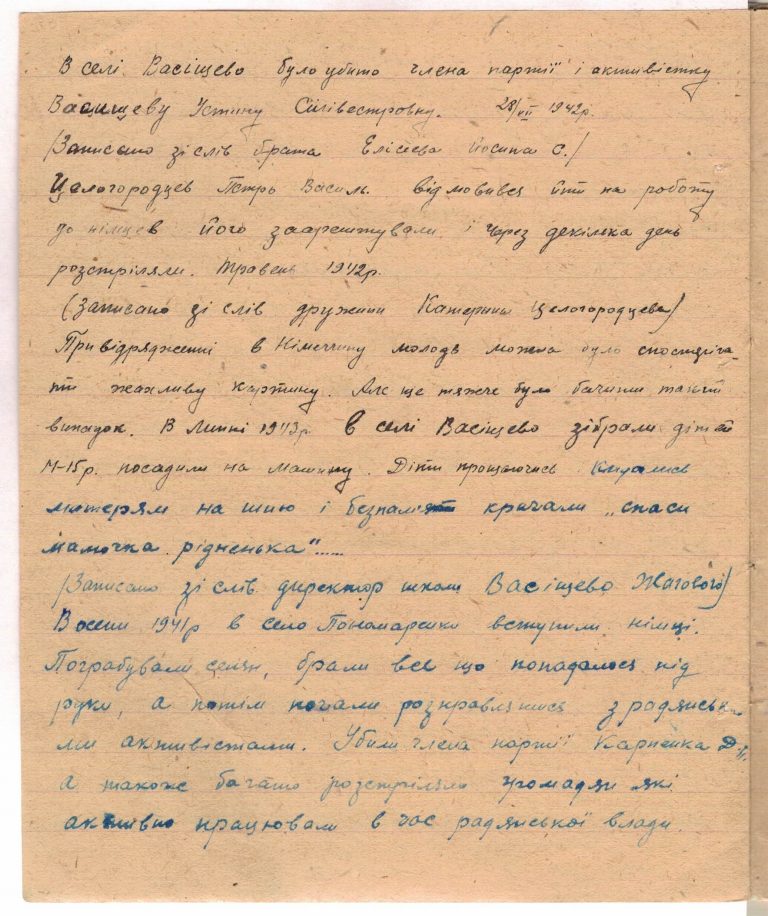 В селі Васіщево було убито члена партії і активістку
Васищеву Устину Сілівестровну. 28/VII 1942р.
/Записано зі слів брата Елісієва Йосипа С./
Целогородцев Петро Василь. відмовився йти на роботу
до німцев його заарештували і через декілька день
розстріляли. травень 1942р.
(Записано зі слів дружини Катерини Целогородцева)
При відрядженні в Німеччину молоді можна було спостеріга-
ти жахливу картину. Але ще тяжче було бачити такий
випадок. В Липні 1943р в селі Васіщево зібрали дітей
14-15р. посадили на машину. Діти прощаючись кидались
матерям на шию і безпам'ят кричали „спаси
мамочка рідненька".....
/Записано зі слів директор школи Васіщево Жагового/
Восени 1941р в село Пономаренки вступили німці.
Пограбували селян, брали все що попадалося під
руки, а потім почали розправлятися з радянськи-
ми активістами. Убили члена партії Карпенка
а також багато розстріляли громадян які
активно працювали в час радянської влади.